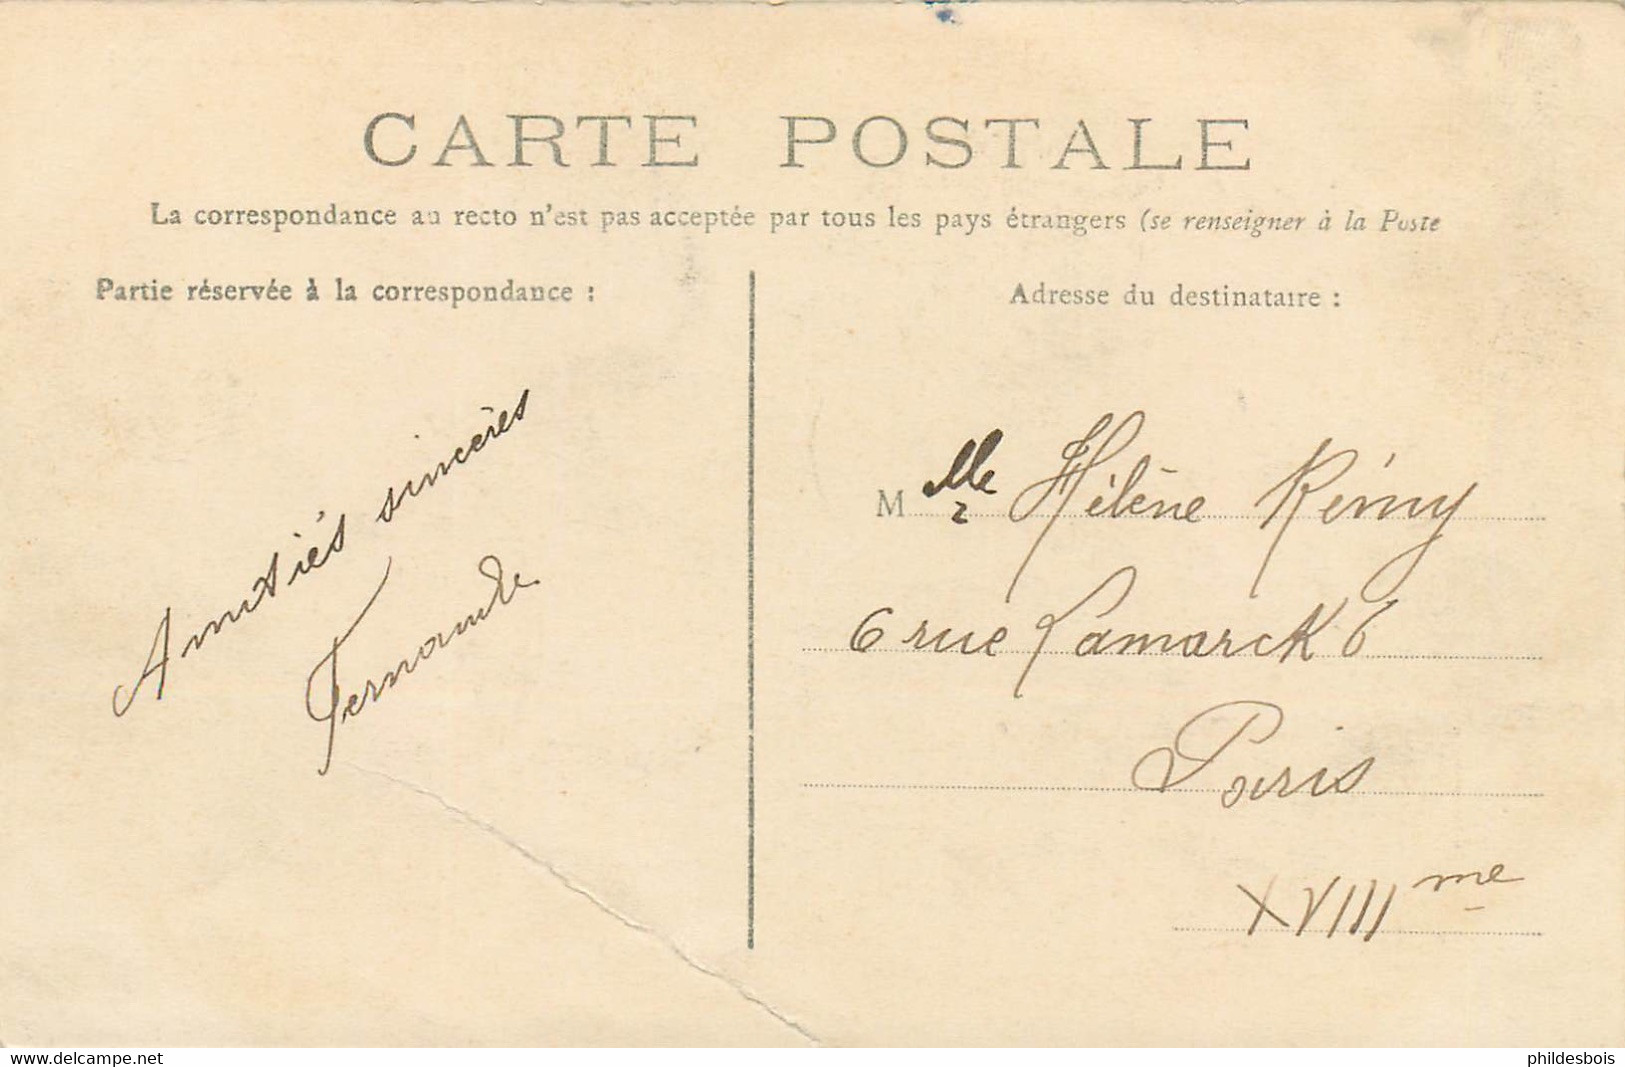 CARTE POSTALE
La correspondance au recto n'est pas acceptée par tous les pays étrangers (se renseigner à la Poste
Partie réservée à la correspondance :
Amitiés sincères
Fernande
Adresse du destinataire :
M lle Hélène Rémy
6 rue Lamarck 6
Paris
XVIII me
www.delcampe.net
phildesbois